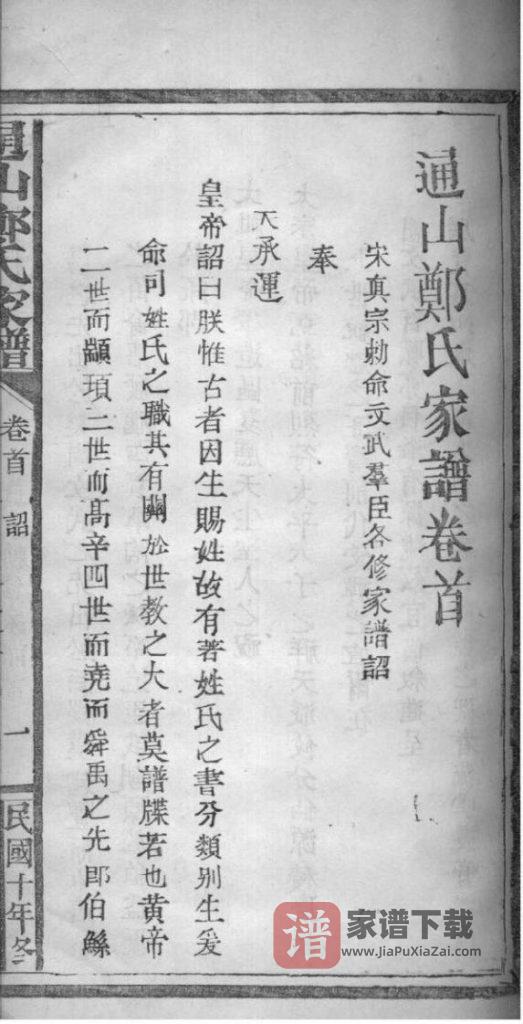 通山鄭氏家譜卷首
宋真宗勅命文武羣臣各修家譜詔
奉
天承運
皇帝詔曰朕惟古者因生賜姓故有著姓氏之書分類别生爰
命司姓氏之職其有關於世教之大者莫譜牒若也黄帝
二世而顓頊三世而髙辛四世而堯而舜禹之先即伯鯀
通山鄭氏家譜
卷首 詔 一
民國十年冬
谱 家谱下载
www.JiaPuXiaZai.com